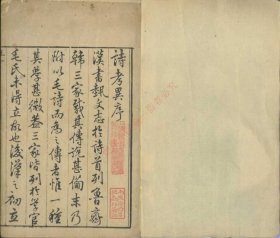 詩考異序
漢書執文志於詩首列魯齊
韓三家載其傳說甚備末乃
附以毛詩而爲之傳者惟一種
其學甚微蓋三家皆列於學官
毛氏未得立故也後漢之初立